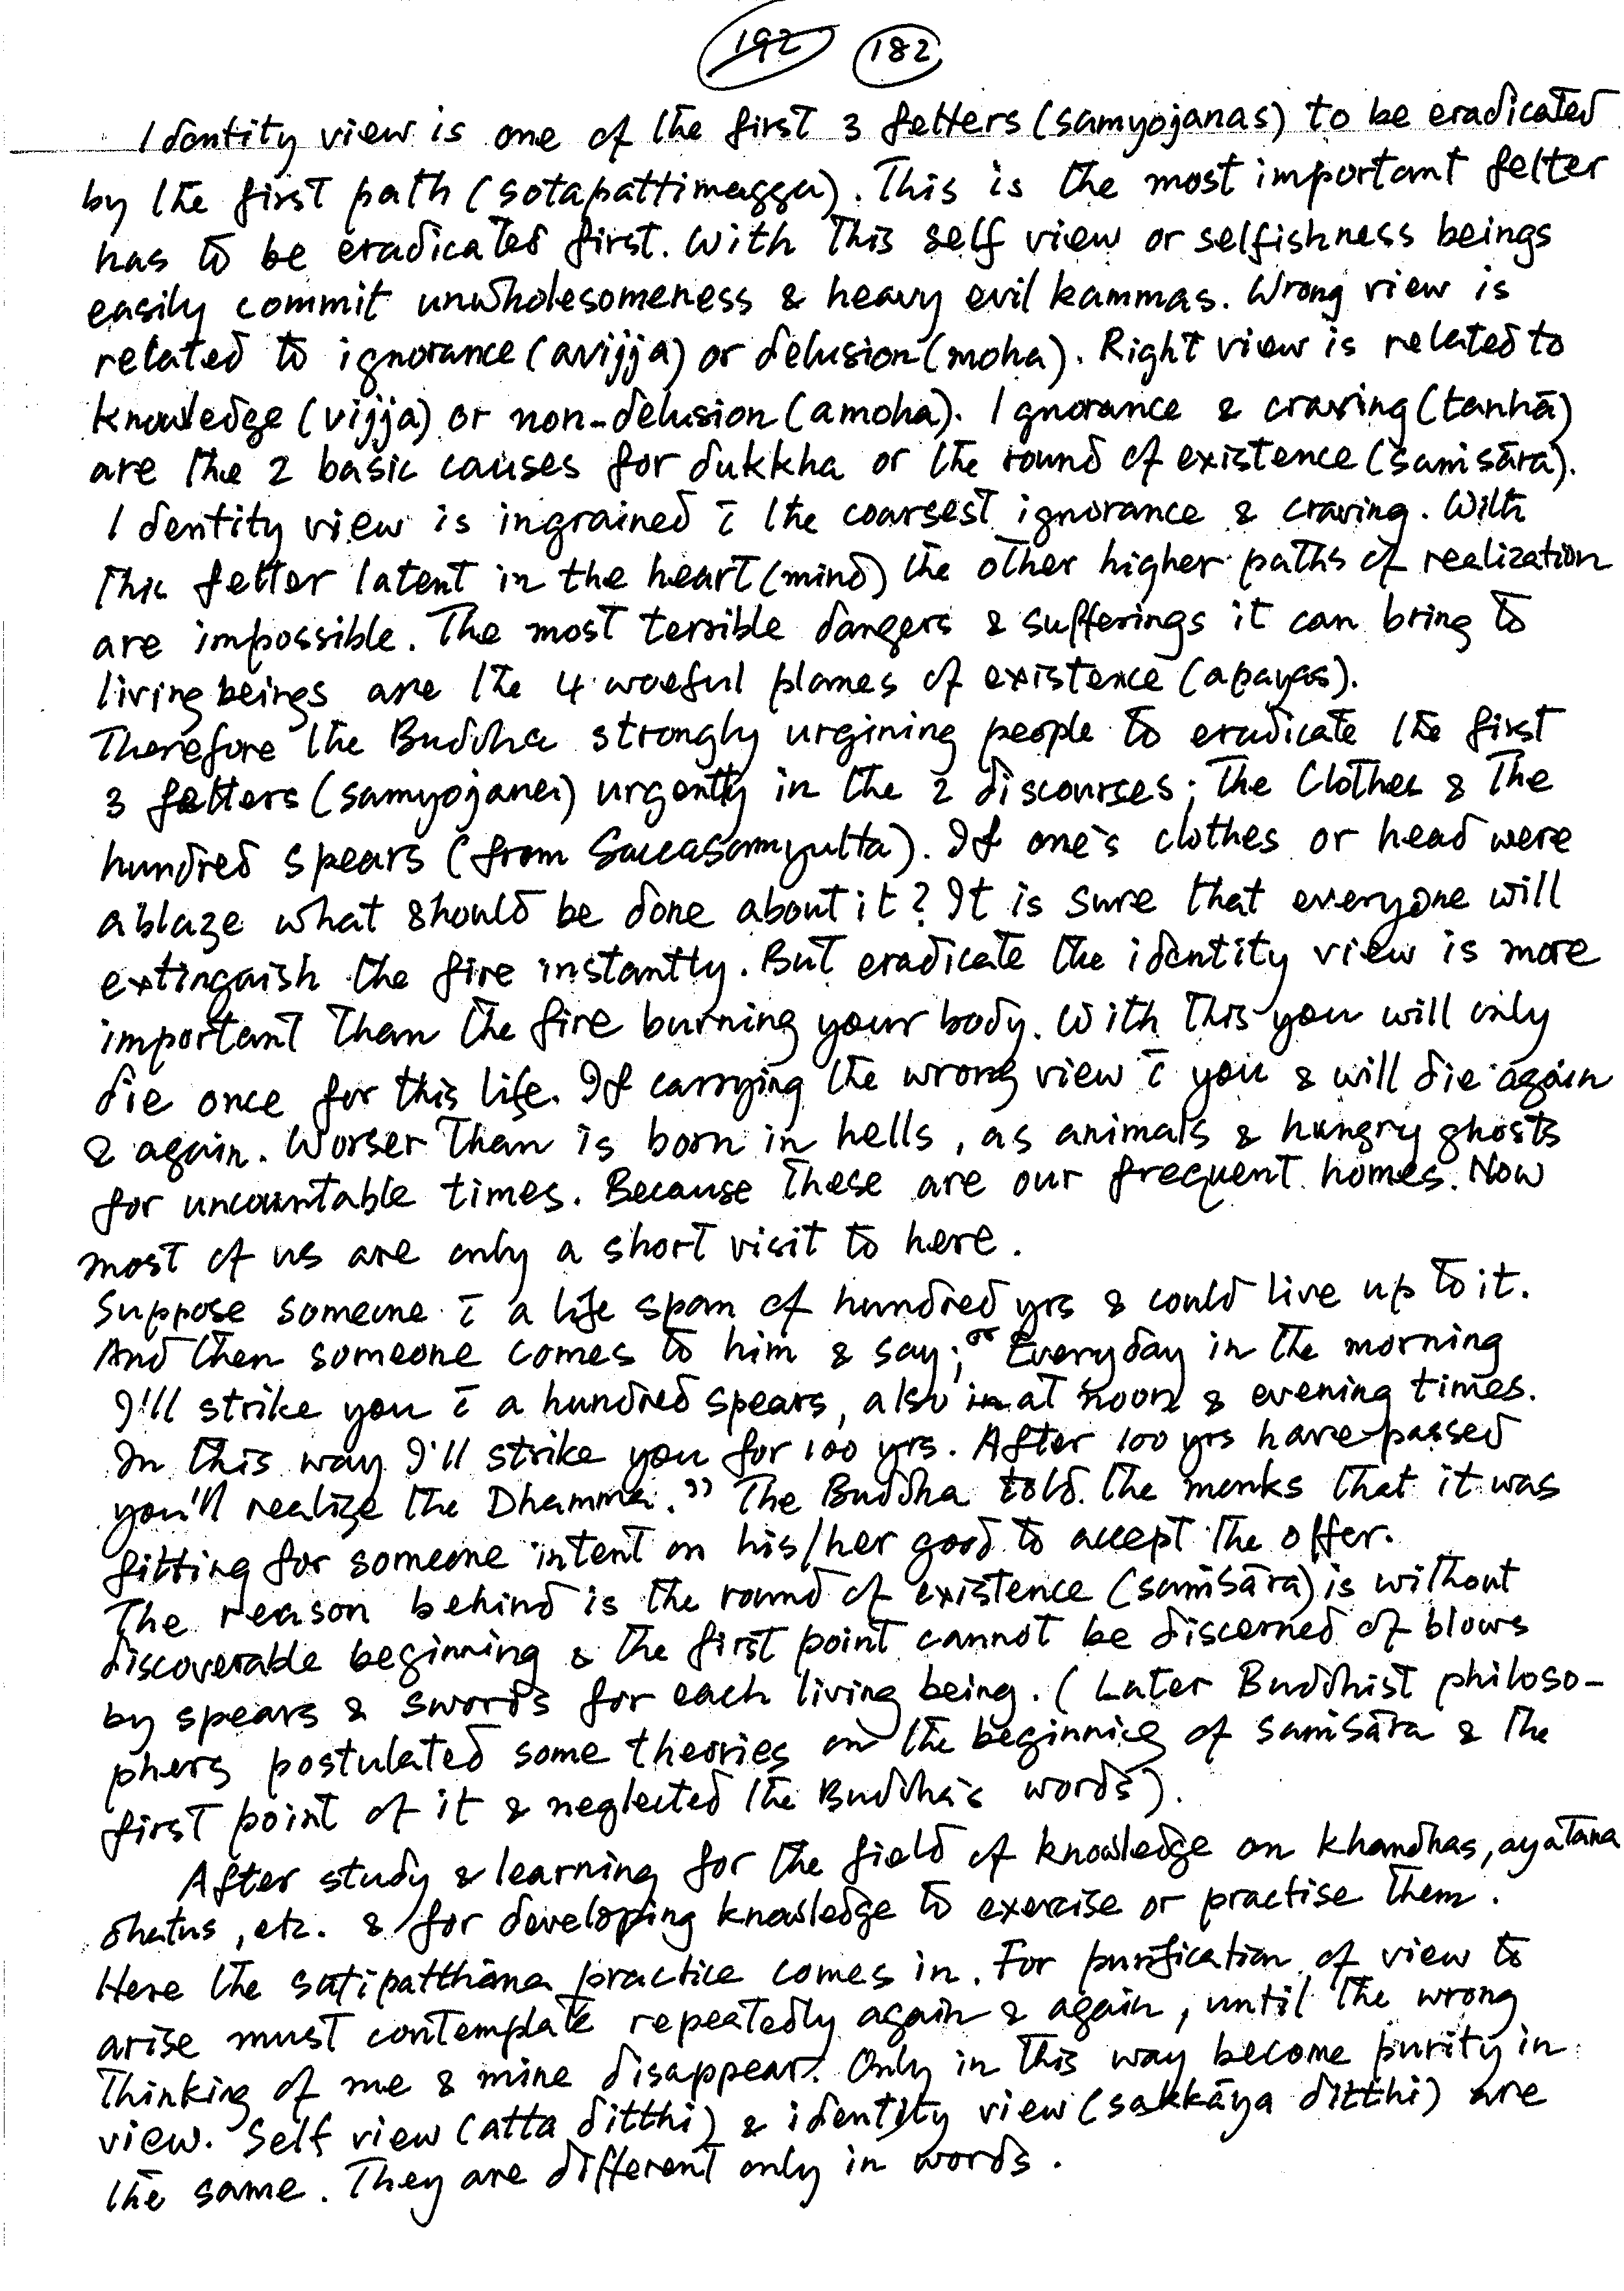 192 182
Identity view is one of the first 3 fetters (samyojanas) to be eradicated
by the first path (sotapattimagga). This is the most important fetter
has to be eradicated first. With this self view or selfishness beings
easily commit unwholesomeness & heavy evil kammas. Wrong view is
related to ignorance (avijja) or delusion (moha). Right view is related to
knowledge (vijja) or non-delusion (amoha). Ignorance & craving (tanhā)
are the 2 basic causes for dukkha or the round of existence (saṁsāra).
Identity view is ingrained c̄ the coarsest ignorance & craving. With
this fetter latent in the heart (mind) the other higher paths of realization
are impossible. The most terrible dangers & sufferings it can bring to
living beings are the 4 woeful planes of existence (apayas).
Therefore the Buddha strongly urgining people to eradicate the first
3 fetters (samyojana) urgently in the 2 discourses; The Clothes & The
hundred spears (from Saccasamyutta). If one's clothes or head were
ablaze what should be done about it? It is sure that everyone will
extinguish the fire instantly. But eradicate the identity view is more
important than the fire burning your body. With this you will only
die once for this life. If carrying the wrong view c̄ you & will die again
& again. Worser than is born in hells, as animals & hungry ghosts
for uncountable times. Because these are our frequent homes. Now
most of us are only a short visit to here.
Suppose someone c̄ a life span of hundred yrs & could live up to it.
And then someone comes to him & say; "Everyday in the morning
I'll strike you c̄ a hundred spears, also in at noon & evening times.
In this way I'll strike you for 100 yrs. After 100 yrs have passed
you'll realize the Dhamma." The Buddha told the monks that it was
fitting for someone intent on his/her good to accept the offer.
The reason behind is the round of existence (saṁsāra) is without
discoverable beginning & the first point cannot be discerned of blows
by spears & swords for each living being. (Later Buddhist philoso-
phers postulated some theories on the beginning of saṁsāra & the
first point of it & neglected the Buddha's words).
After study & learning for the field of knowledge on khandhas, ayatana
dhatus, etc. & for developing knowledge to exercise or practise them.
Here the satipatthāna practice comes in. For purification of view to
arise must contemplate repeatedly again & again, until the wrong
thinking of me & mine disappear. Only in this way become purity in
view. Self view (atta ditthi) & identity view (sakkāya ditthi) are
the same. They are different only in words.